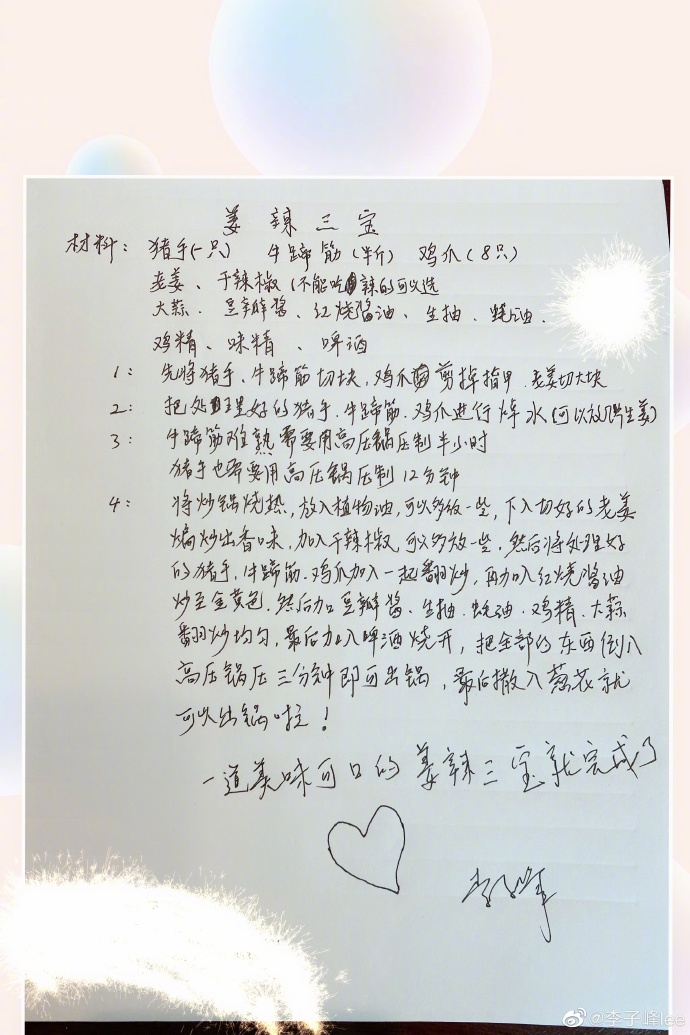 姜辣三宝
材料：猪手(一只) 牛蹄筋(半斤) 鸡爪(8只)
老姜、干辣椒(不能吃辣的可以选
大蒜、豆瓣酱、红烧酱油、生抽、蚝油、
鸡精、味精、啤酒
1：先将猪手、牛蹄筋切块,鸡爪剪掉指甲.老姜切大块
2：把处理好的猪手、牛蹄筋、鸡爪进行焯水(可以放点生姜)
3：牛蹄筋难熟需要用高压锅压制半小时
猪手也需要用高压锅压制12分钟
4：将炒锅烧热,放入植物油,可以多放一些,下入切好的老姜
煸炒出香味,加入干辣椒,可以多放一些,然后将处理好
的猪手,牛蹄筋、鸡爪加入一起翻炒,再加入红烧酱油
炒至金黄色.然后加豆瓣酱、生抽、蚝油、鸡精、大蒜
翻炒均匀,最后加入啤酒烧开,把全部的东西倒入
高压锅压三分钟即可出锅,最后撒入葱花就
可以出锅啦!
一道美味可口的姜辣三宝就完成了
李子峰
@李子峰lee